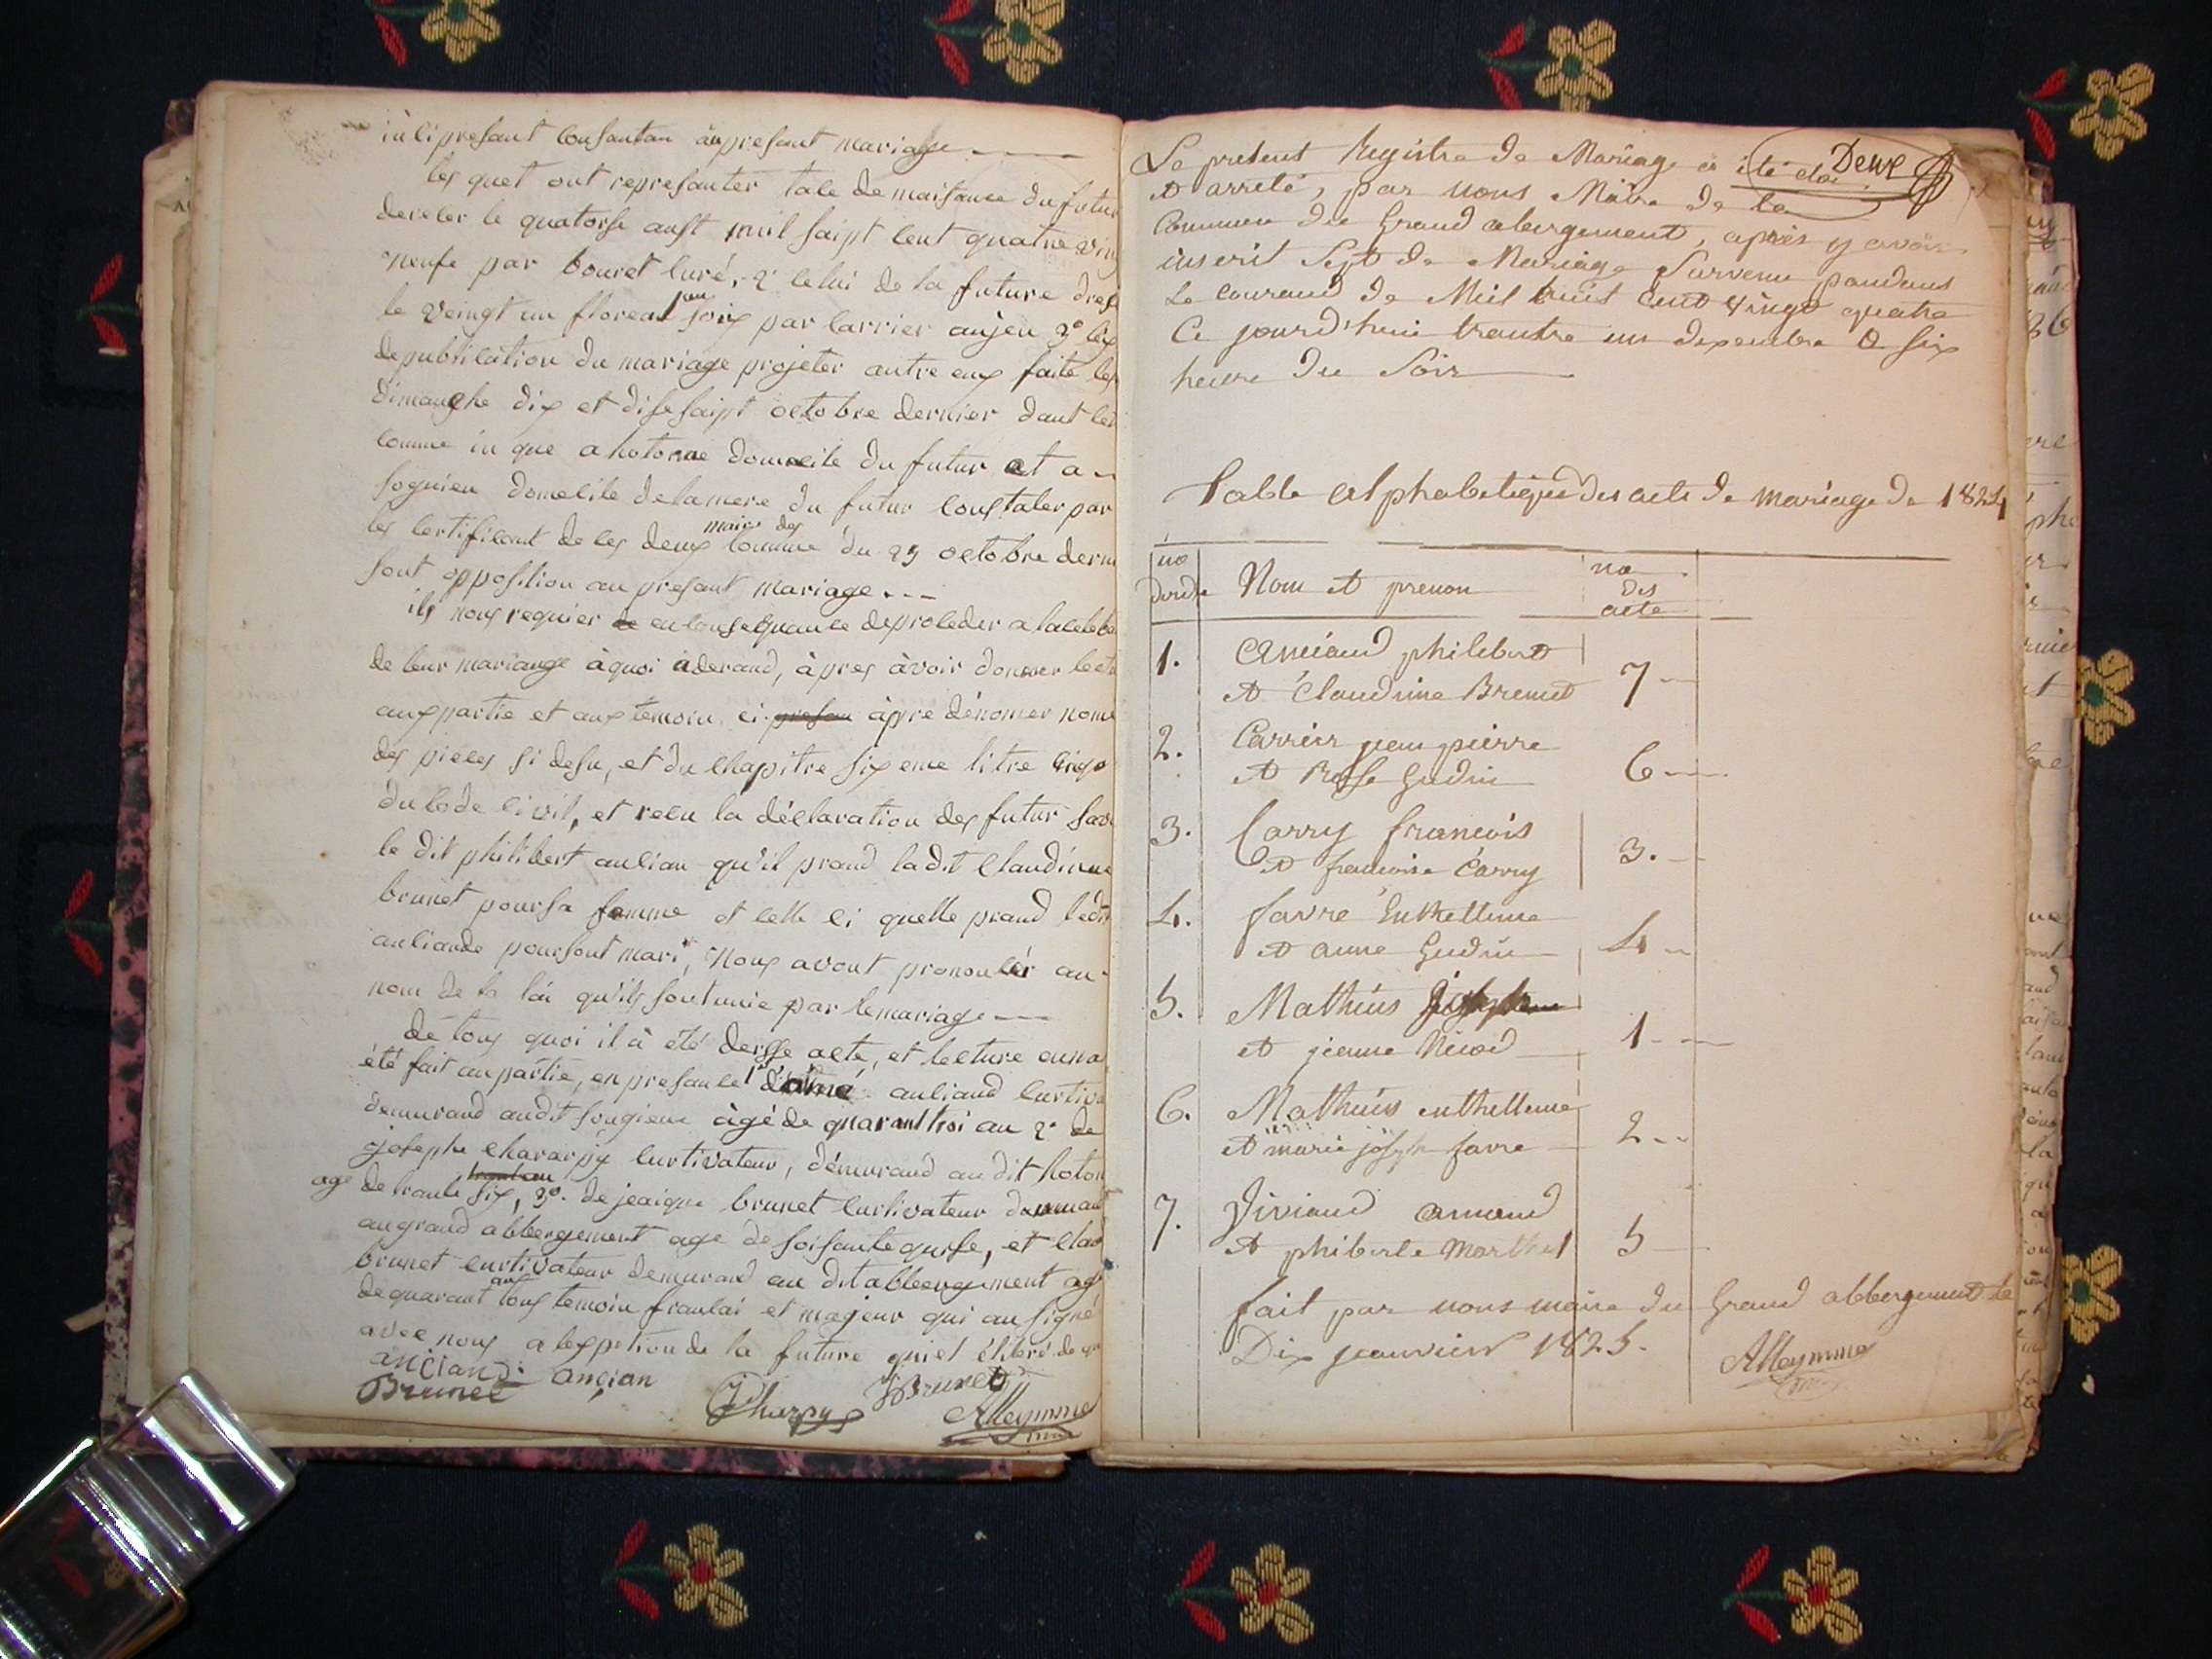 ici presant consantan au presant mariage
les quel ont represanter lale de naisance du futur
dereler le quatorse aust mil saipt cent quatre ving
neufe par bouret curé, 2° celui de la future drese
le veingt un floreal an soix par carrier anjeu 3° les
de publication du mariage projeter autre eux faite les
dimanche dix et disesaipt octobre dernier dant les
comme in que a hotonne domecile du futur et a
sognieu domelile de la mere du futur constater par
les certificat de les deux maire des comme du 25 octobre dern
sont opposition au presant mariage
ils nous requier de en consequance de proceder a la celebr
de leur mariange à quoi aderand, àpres àvoir donner lect
aux partie et aux temoin ci presan àpre dénomer nome
des pieces si desu, et du chapitre sixeme titre cinqe
du code civil, et recu la déclaration des futur savoi
le dit philibert ancian qu'il prand la dit Claudinne
brunet pour sa femme et celle ci quelle prand ledit
anciande pour sont mari, Nous avont prononcér au
nom de la loi qu'ils sont unie par le mariage
de tous quoi il à été dersse acte, et lecture enna
été fait au partie, en presance 1° d'aimé anciand curtiva
demurand audit songieu àgé de quarant troi an 2° de
josephe chararpy curtivateur, démurand au dit hoton
age de trante six, 3°. de jeaique brunet curtivateur demuant
au grand abbergement age de soisante quise, et Clau
brunet curtivateur demurand au dit abbergement age
de quarant an tous temoin francai et majeur qui an signé
avec nous a lexpetion de la future qui et élibré de
anciand ancian JBrunet
Brunet JCharpy Alleymme
maire
Deuxe
Le present Registre de Mariage a été clos
et arreté, par nous Maire de la
Commune du Grand abergement, après y avoir
inscrit Sept de Mariage Survenu pandans
Le courand de Mil huit Cent Vingt quatre
Ce jourd'hui trantre un dexembre a six
heure du Soir
Table alphabetique des acte de mariage de 1824
no dordre Nom et prenon no des acte
1. Anciand philebert
et Claudine Brenet 7
2. Carrier jean pierre
et Rose Gudin 6
3. Carry francois
et francoise Carry 3.
4. favre Enthelleme
et anne Gudin 4
5. Mathieus Joseph
et jeanne Nicod 1
6. Mathieus enthelleme
et marie joseph favre 2
7. Viviand Armand
et phiberte Marthel 5
fait par nous maire du Grand abbergement le
Dix jeanvier 1825.
Alleymme
maire